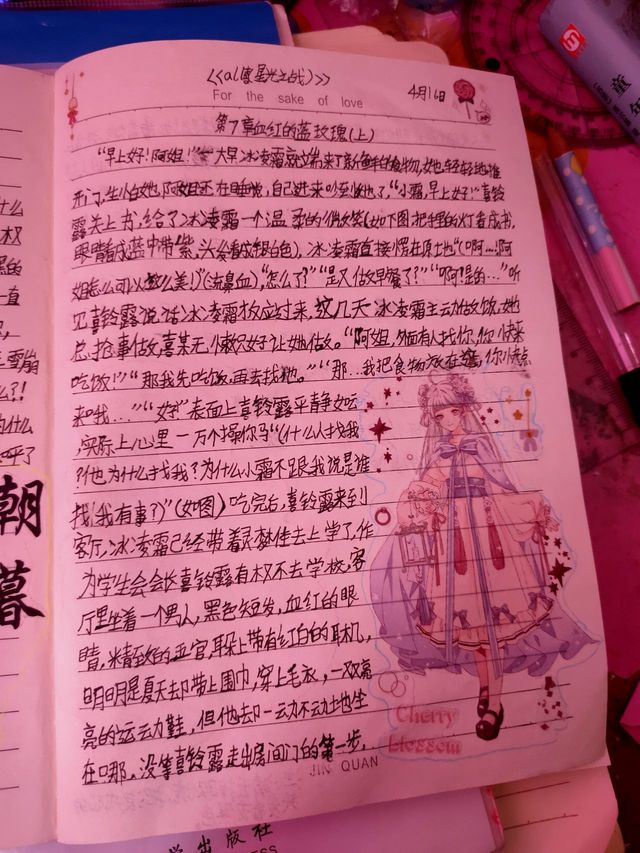 《al底星光之战》
4月16日
For the sake of love
第7章血红的蓝玫瑰(上)
"早上好!阿姐!"一大早冰凌霜就端来了新鲜的食物,她轻轻地推
开门,生怕她阿姐还在睡觉,自己进来吵到她了,"小霜,早上好!"喜铃
露关上书,给了冰凌霜一个温柔的微笑(如下图,把手里的灯看成书,
眼睛看成蓝中带紫,头发看成银白色),冰凌霜直接愣在原地"(啊…阿
姐怎么可以这么美!)"(流鼻血),"怎么了?""是又做早餐了?""啊!是的…"听
见喜铃露说话冰凌霜才反应过来,这几天冰凌霜主动做饭,她
总抢事做,喜某无懒只好让她做。"阿姐,外面有人找你,你快来
吃饭!""那我先吃饭,再去找他。""那…我把食物放在这,你小心点
来叫我…""好!"表面上喜铃露平静如呓
,实际上心里一万个操你马"(什么人找我
?他为什么找我?为什么小霜不跟我说是谁
找我有事?)"(如图)吃完后,喜铃露来到
客厅,冰凌霜已经带着灵梦佳去上学了,作
为学生会会长喜铃露有权不去学校,客
厅里坐着一个男人,黑色短发,血红的眼
睛,精致的五官,耳朵上带有红白的耳机,
明明是夏天却带上围巾,穿上毛衣,一双高
亮的运动鞋,但他却一动不动地坐
在哪。没等喜铃露走出房间门的第一步,
Cherry
blossom
JIN QUAN
什么
权
黑的
一直
雪崩
么?!
为什么
呼了
朝
暮
学出版社